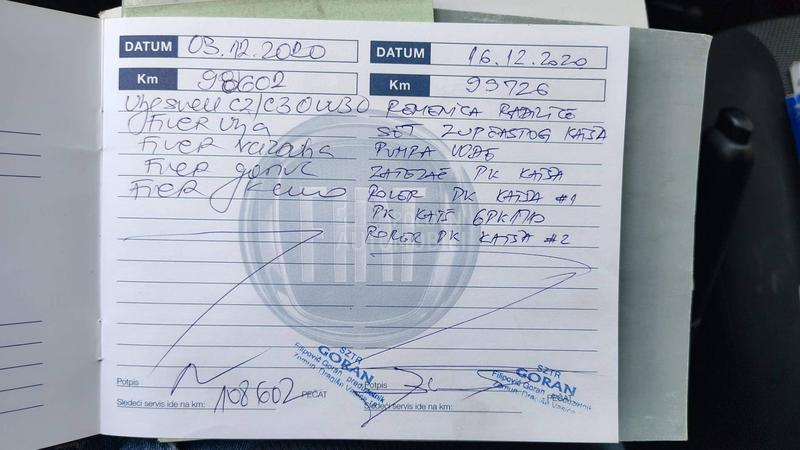 DATUM 03.12.2020
Km 98602
Ulje Shell C2/C3 0W30
Filter ulja
Filter vazduha
Filter goriva
Filter
Potpis
PEČAT
Sledeći servis ide na km: 108602
SZTR
GORAN
Filipović Goran preduzetnik
Zemun
DATUM 16.12.2020
Km 99726
REMENICA RADILICE
SET ZUPČASTOG KAIŠA
PUMPA VODE
ZATEZAČ PK KAIŠA
ROLER PK KAIŠA #1
PK KAIŠ 6PK1710
ROLER PK KAIŠA #2
Potpis
PEČAT
Sledeći servis ide na km:
SZTR
GORAN
Filipović Goran preduzetnik
Zemun